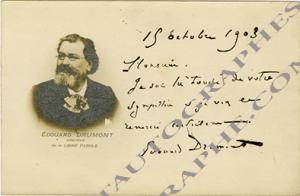 15 octobre 1903
Monsieur,
Je suis très touché de votre
sympathie et je vous en
remercie
Edouard Drumont
EDOUARD DRUMONT
DIRECTEUR
de la LIBRE PAROLE
AUTOGRAPHES